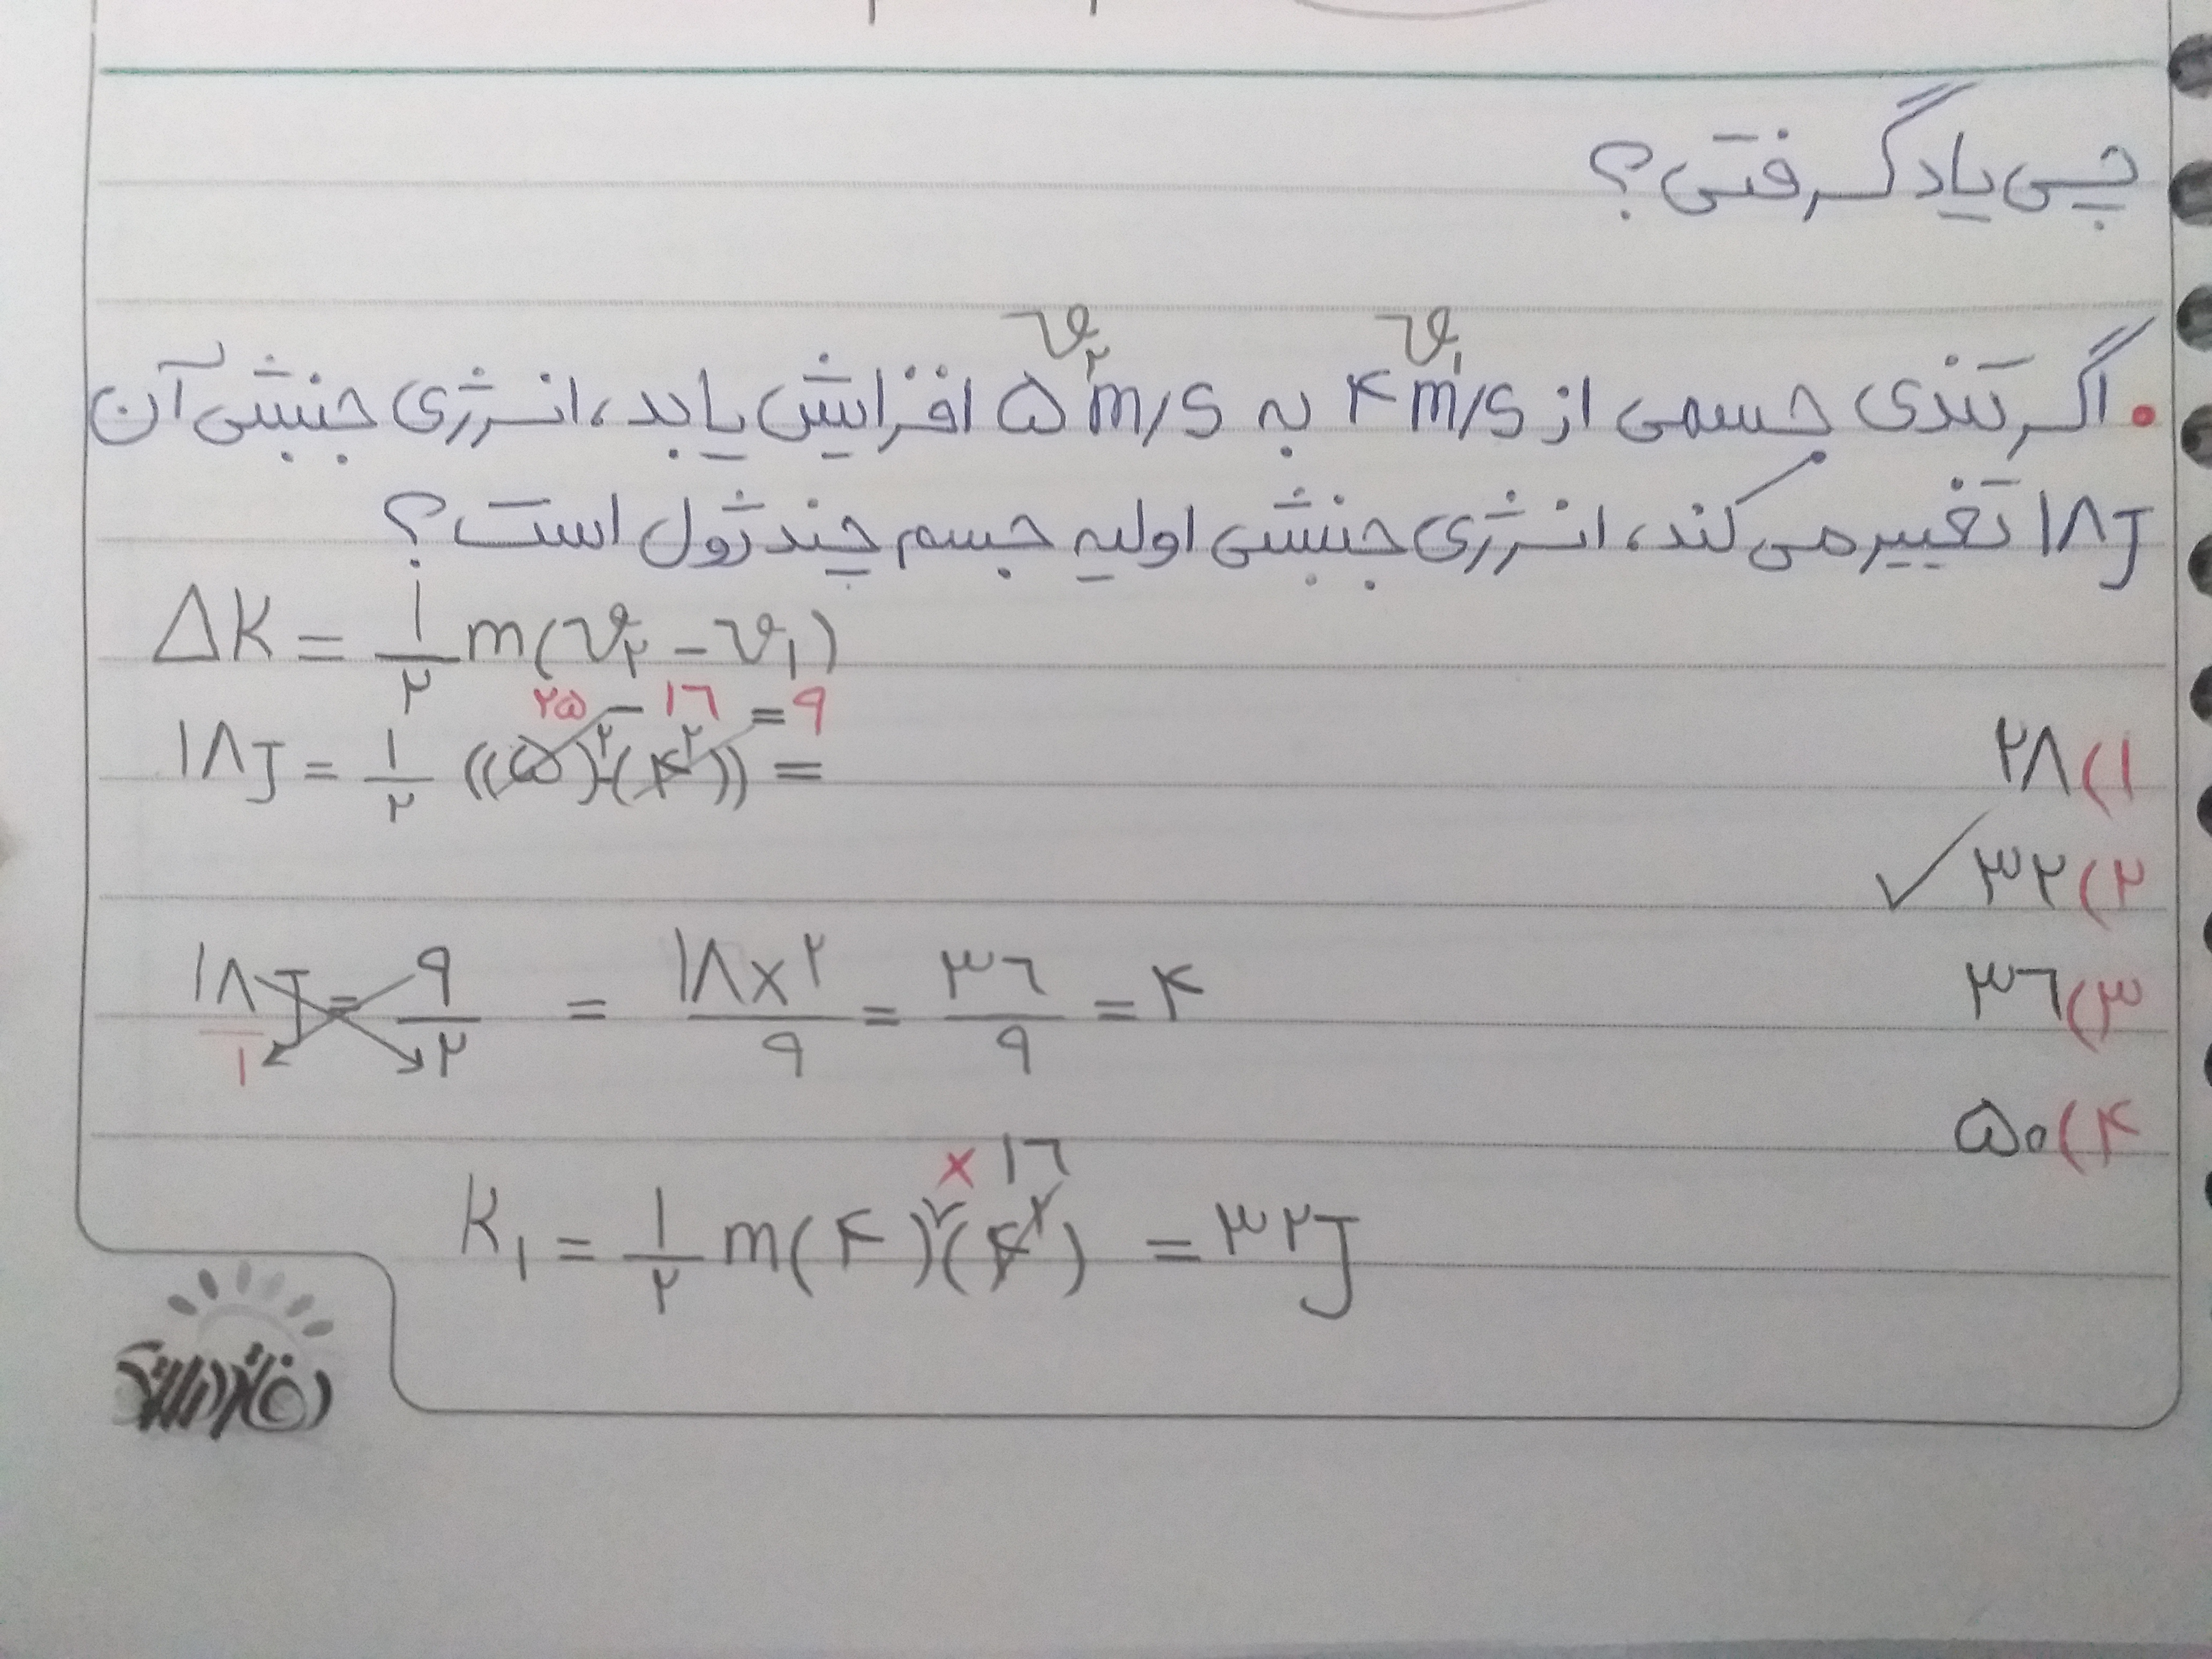 چی یاد گرفتی؟
v۲ v۱
• اگر تندی جسمی از ۴m/s به ۵m/s افزایش یابد، انرژی جنبشی آن
۱۸J تغییر می‌کند، انرژی جنبشی اولیه جسم چند ژول است؟
ΔK = ۱/۲ m(v۲ - v۱)
۲۵ - ۱۶ = ۹
۱۸J = ۱/۲ ((۵)^۲-(۴^۲)) =
۱) ۲۸
۲) ۳۲ ✓
۱۸J/۱ = ۹/۲ = ۱۸×۲/۹ = ۳۶/۹ = ۴
۳) ۳۶
۴) ۵۰
× ۱۶
K۱ = ۱/۲ m(۴)^۲(۴^۲) = ۳۲J